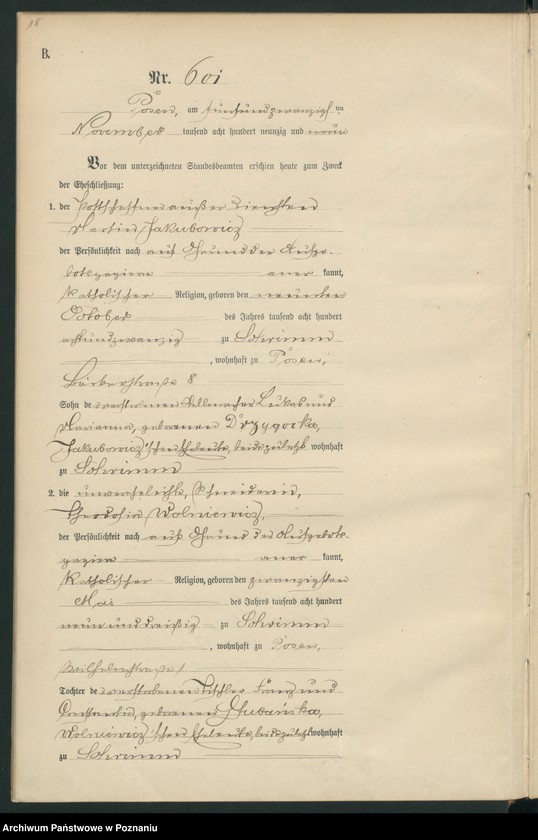 18
B.
Nr. 601
Posen, am fünfundzwanzigsten
November tausend acht hundert neunzig und neun
Vor dem unterzeichneten Standesbeamten erschien heute zum Zweck
der Eheschließung:
1. der Postschaffner außer Diensten
Martin Jakubowicz
der Persönlichkeit nach auf Grund der Aufge-
botspapiere aner kannt,
katholischer Religion, geboren den neunten
October des Jahres tausend acht hundert
achtundzwanzig zu Schrimm
, wohnhaft zu Posen,
Bäckerstraße 8
Sohn des verstorbenen Lukas und
Marianna, geborenen Drzygocka,
Jakubowicz'schen Eheleute, beide zuletzt wohnhaft
zu Schrimm
2. die unverehelichte, Schneiderin,
Theodosia Wolniewicz,
der Persönlichkeit nach auf Grund des Aufgebots-
papiere aner kannt,
katholischer Religion, geboren den zwanzigsten
Mai des Jahres tausend acht hundert
neun und dreißig zu Schrimm
, wohnhaft zu Posen,
Wilhelmstraße
Tochter des verstorbenen Tischler Franz und
Constantia, geborenen
Wolniewicz'schen Eheleute, beide zuletzt wohnhaft
zu Schrimm
Archiwum Państwowe w Poznaniu